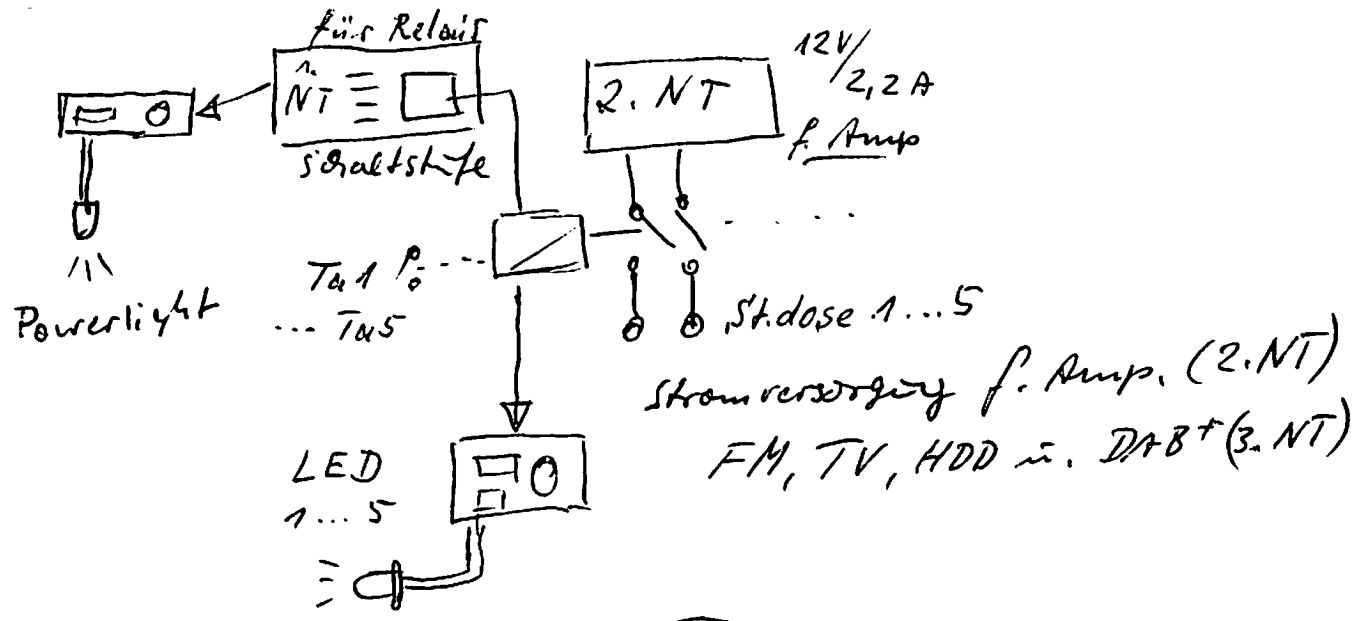 für Relais
1.
NT
Schaltstufe
2. NT
12V/
2,2 A
f. Amp
Powerlight
Ta 1
... Ta5
St.dose 1...5
Stromversorgung f. Amp. (2.NT)
FM, TV, HDD u. DAB+ (3. NT)
LED
1...5